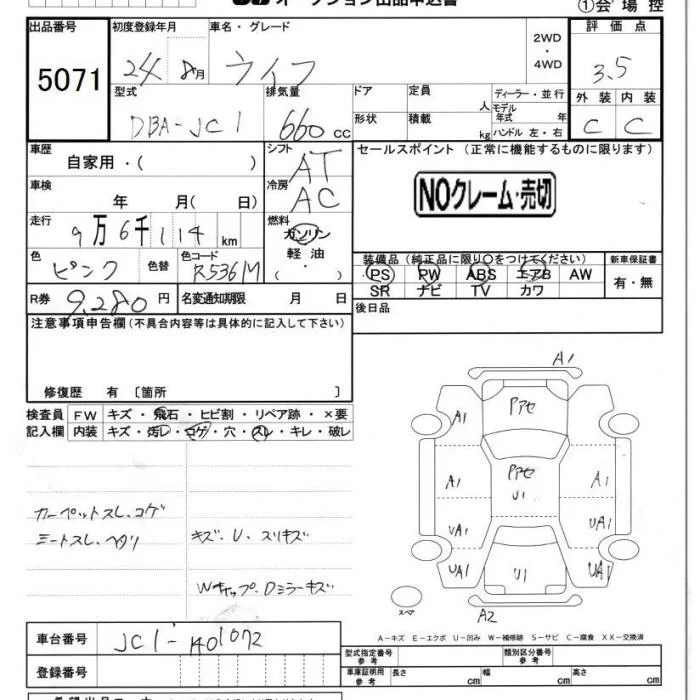 オークション出品申込書 ①会場控
出品番号 初度登録年月 車名・グレード 2WD・4WD 評価点
5071 24年 8月 ライフ 3.5
型式 排気量 ドア 定員 人 ディーラー・並行 外装 内装
DBA-JC1 660cc 形状 積載 kg モデル年式 年 ハンドル 左・右 C C
車歴 シフト セールスポイント (正常に機能するものに限ります)
自家用・( ) AT
車検 年 月( 日) 冷房 AC NOクレーム・売切
走行 燃料
9万6千114km ガソリン
色 色替 色コード 軽油 装備品(純正品に限り○をつけてください) 新車保証書
ピンク R536M ( ・ ) PS PW ABS エアB AW 有・無
SR ナビ TV カワ
R券 9,280円 名変通知期限 月 日 後日品
注意事項申告欄(不具合内容等は具体的に記入して下さい)
修復歴 有 〔箇所 〕
検査員 FW キズ・飛石・ヒビ割・リペア跡・×要
記入欄 内装 キズ・汚レ・コゲ・穴・スレ・キレ・破レ
カーペットスレ、コゲ
シートスレ、ヘタリ
キズ・U・スリキズ
Wキャップ・Dミラーキズ
A1
A1 Pアセ
A1 Pアセ A1
U1
UA1 UA1
UA1 U1 UA1
スペア A2
A-キズ E-エクボ U-凹み W-補修跡 S-サビ C-腐食 XX-交換済
車台番号 JC1-1401072
登録番号
型式指定番号 参考 類別区分番号 参考
車庫証明用 参考 長さ cm 幅 cm 高さ cm